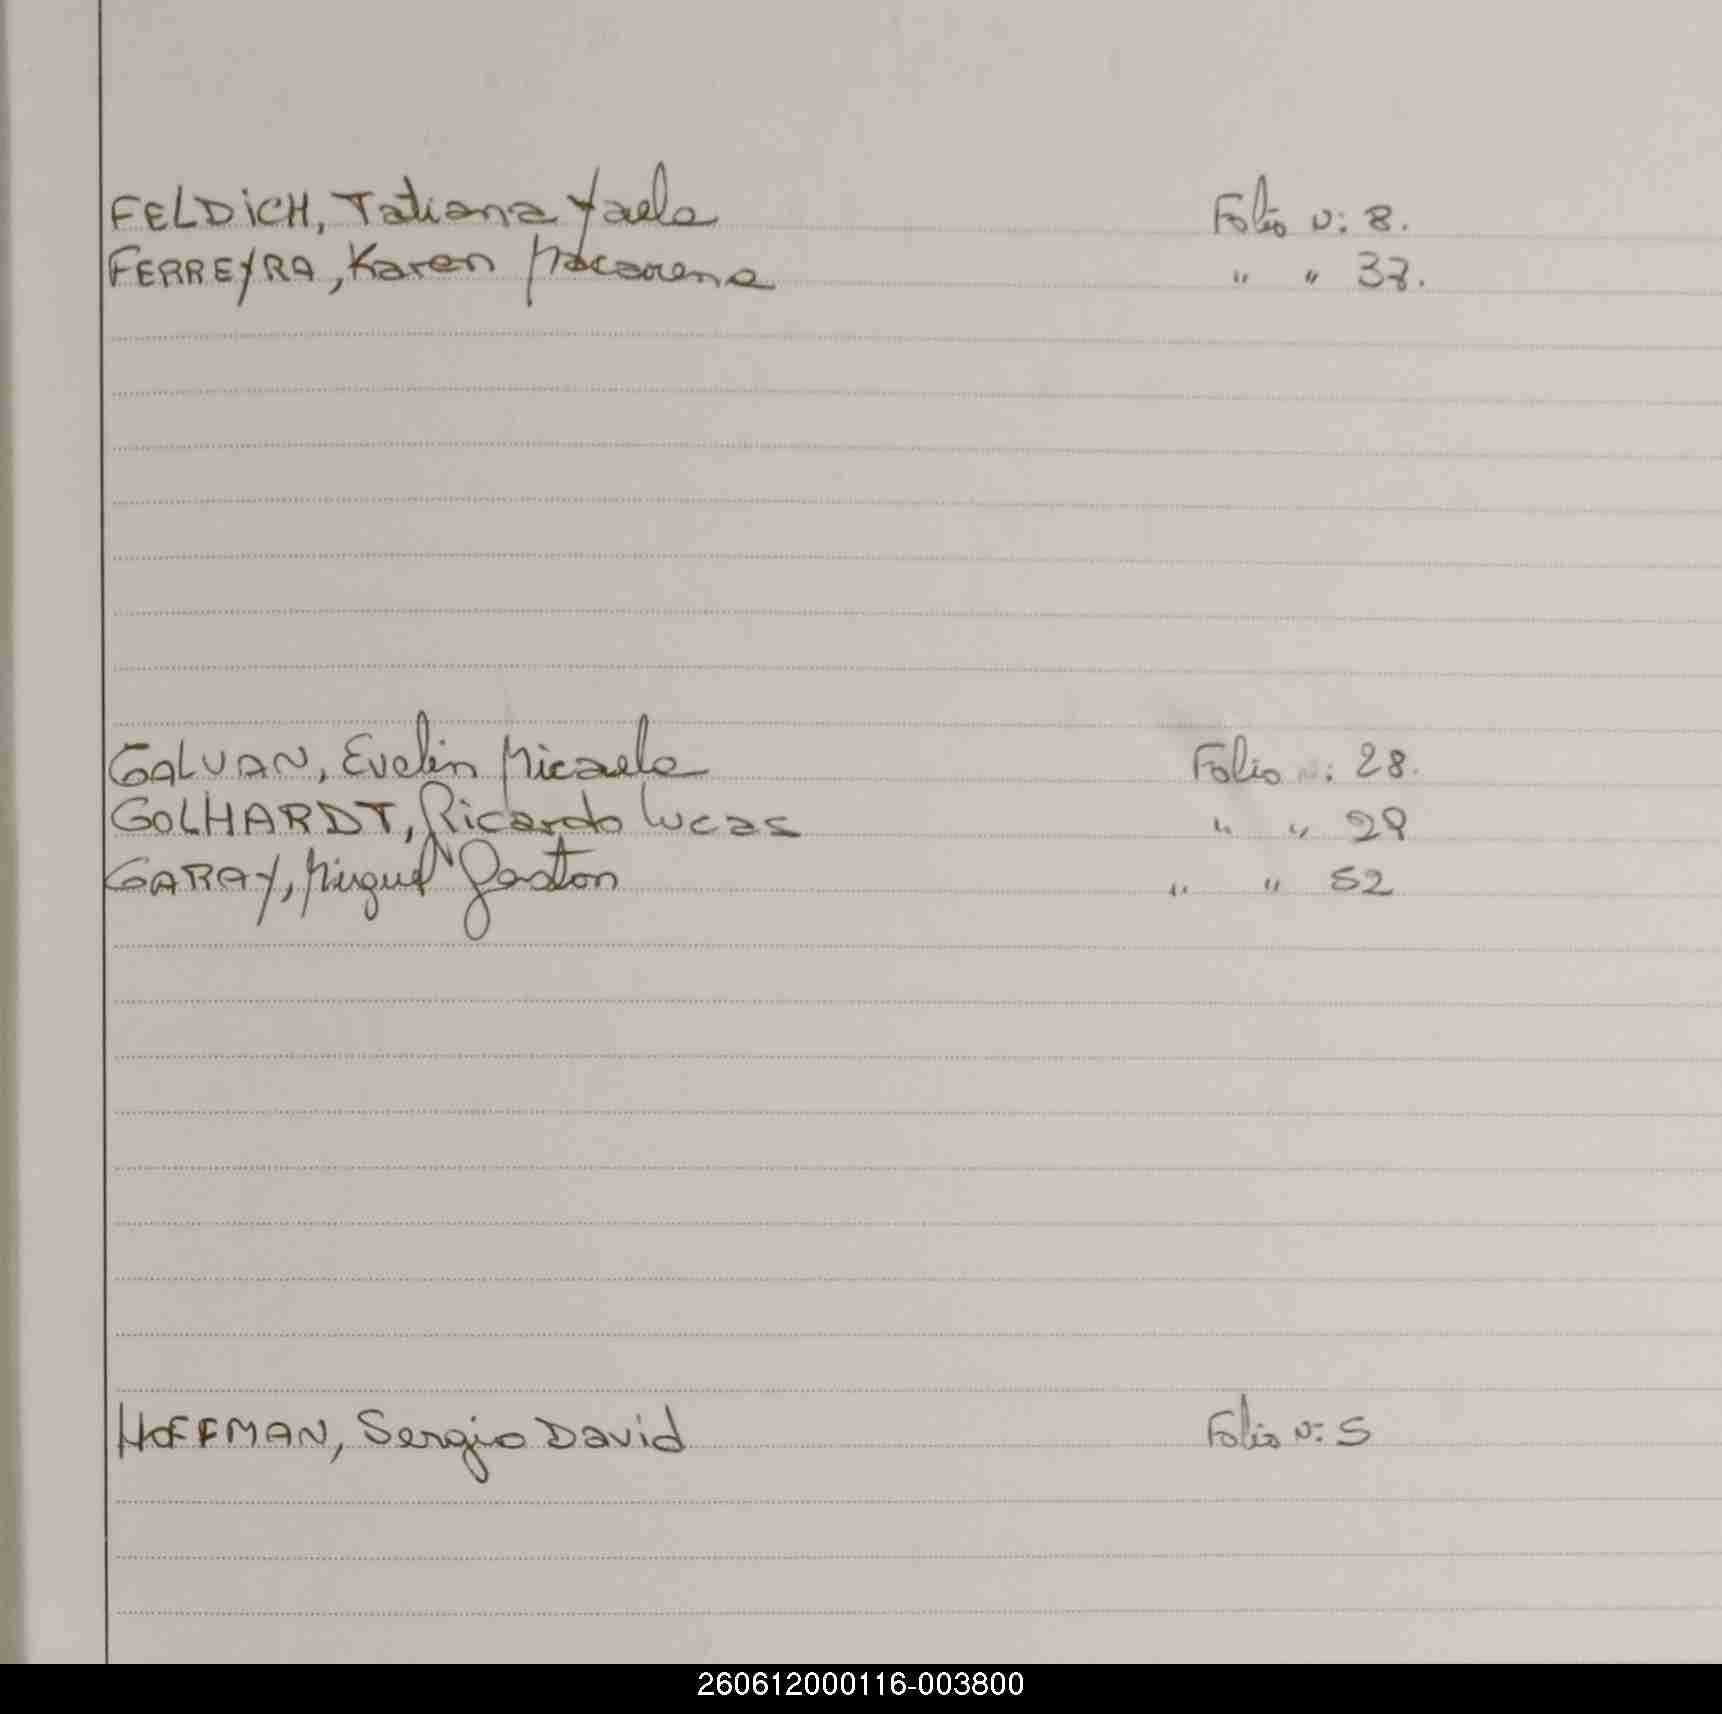 FELDICH, Tatiana Yaela Folio N: 8.
FERREYRA, Karen Macarena " " 37.
GALVAN, Evelin Micaela Folio N: 28.
GOLHARDT, Ricardo Lucas " " 29
GARAY, Miguel Gaston " " 52
HOFFMAN, Sergio David Folio N: 5
260612000116-003800